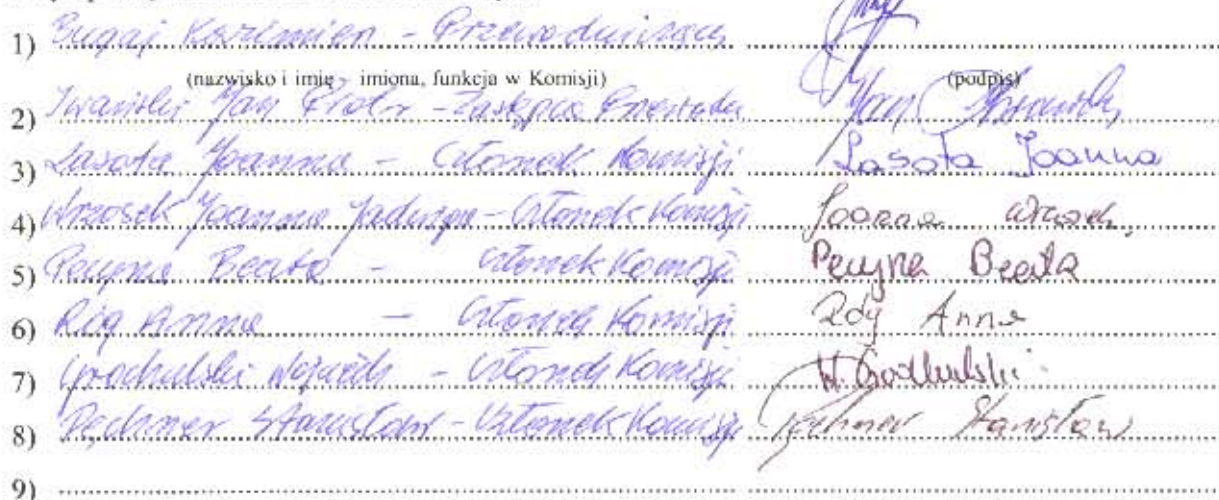 1) Bugaj Kazimierz - Przewodniczący
(nazwisko i imię - imiona, funkcja w Komisji) (podpis)
2) Iwański Jan Piotr - Zastępca Jan
3) Lasota Joanna - Członek Komisji Lasota Joanna
4) Wrzosek Joanna Jadwiga - Członek Komisji Joanna Wrzosek
5) Pecyna Beata - Członek Komisji Pecyna Beata
6) Anna - Członek Komisji Anna
7) Grochulski Wojciech - Członek Komisji W. Grochulski
8) Pechner Stanisław - Członek Komisji Pechner Stanisław
9)